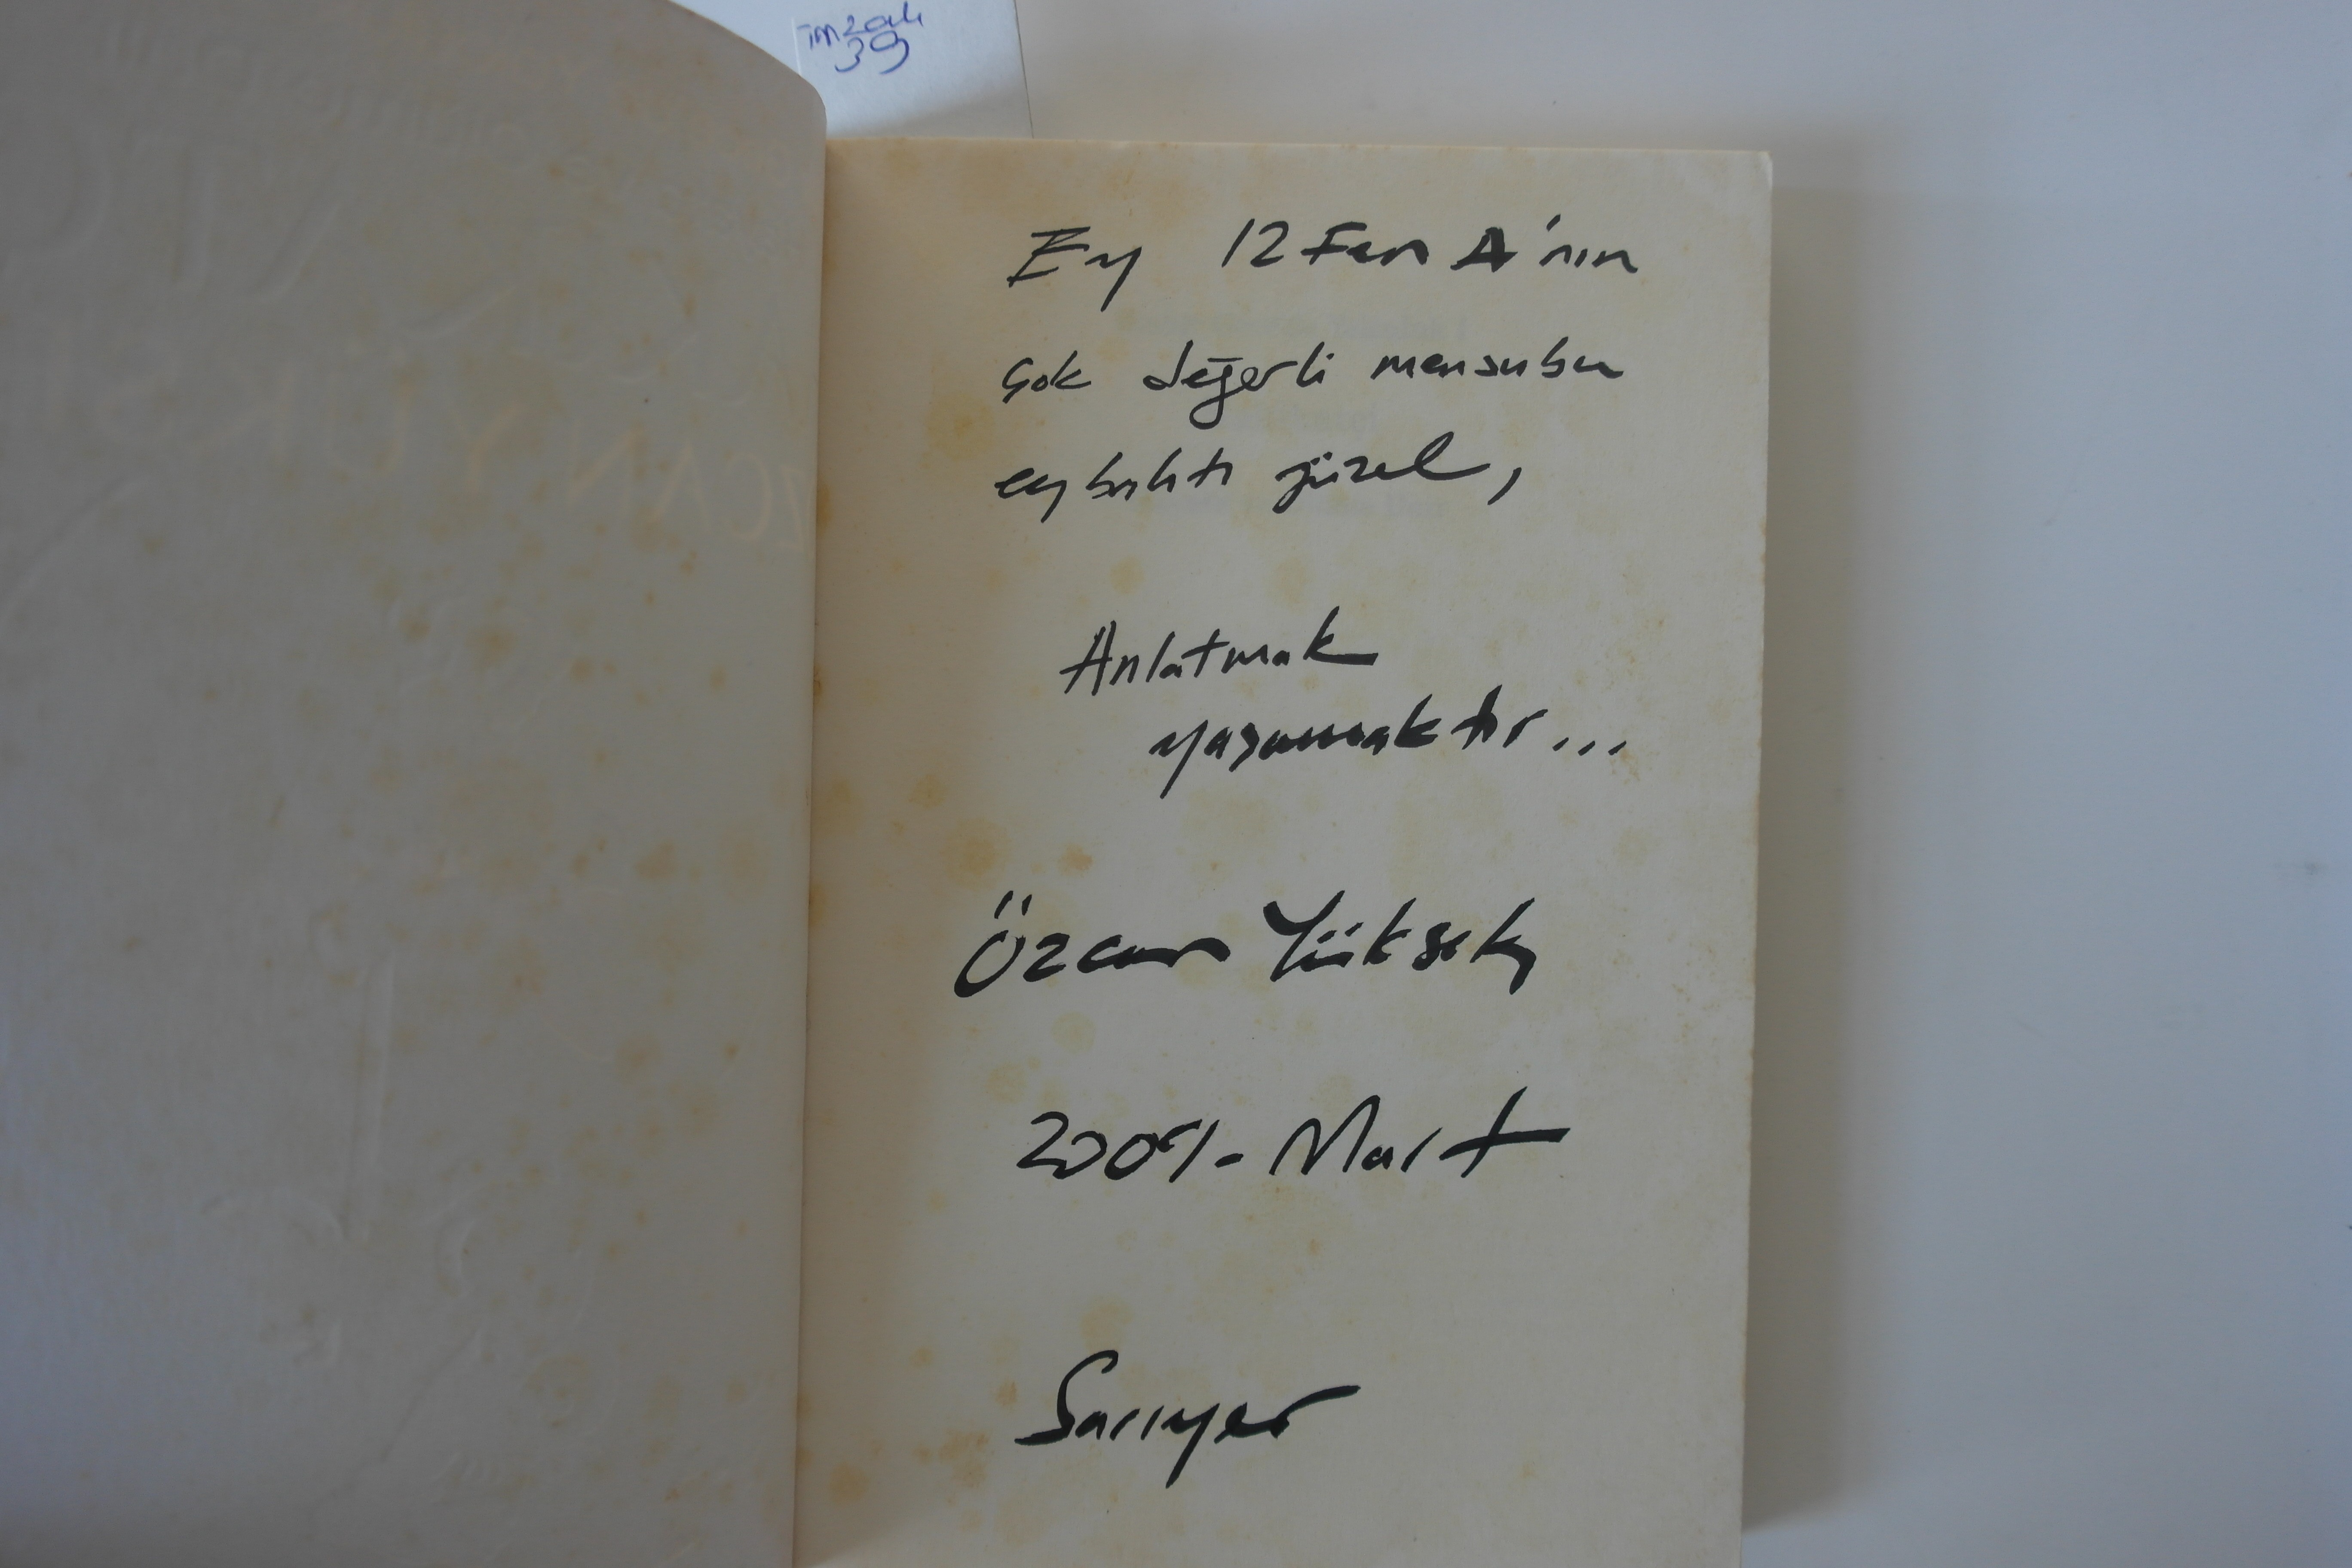 imzalı
39
Ey 12 Fen A'nın
çok değerli mensubu
ey bahtı güzel,
Anlatmak
yaşamaktır...
Özcan Yüksek
2009- Mart
Sarıyer